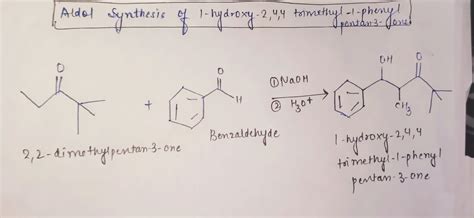 Aldol Synthesis of 1-hydroxy-2,4,4 trimethyl-1-phenyl
pentan-3-one
O
+
O
H
Benzaldehyde
① NaOH
② H₃O⁺
OH
O
CH₃
2,2-dimethylpentan-3-one
1-hydroxy-2,4,4
trimethyl-1-phenyl
pentan-3-one